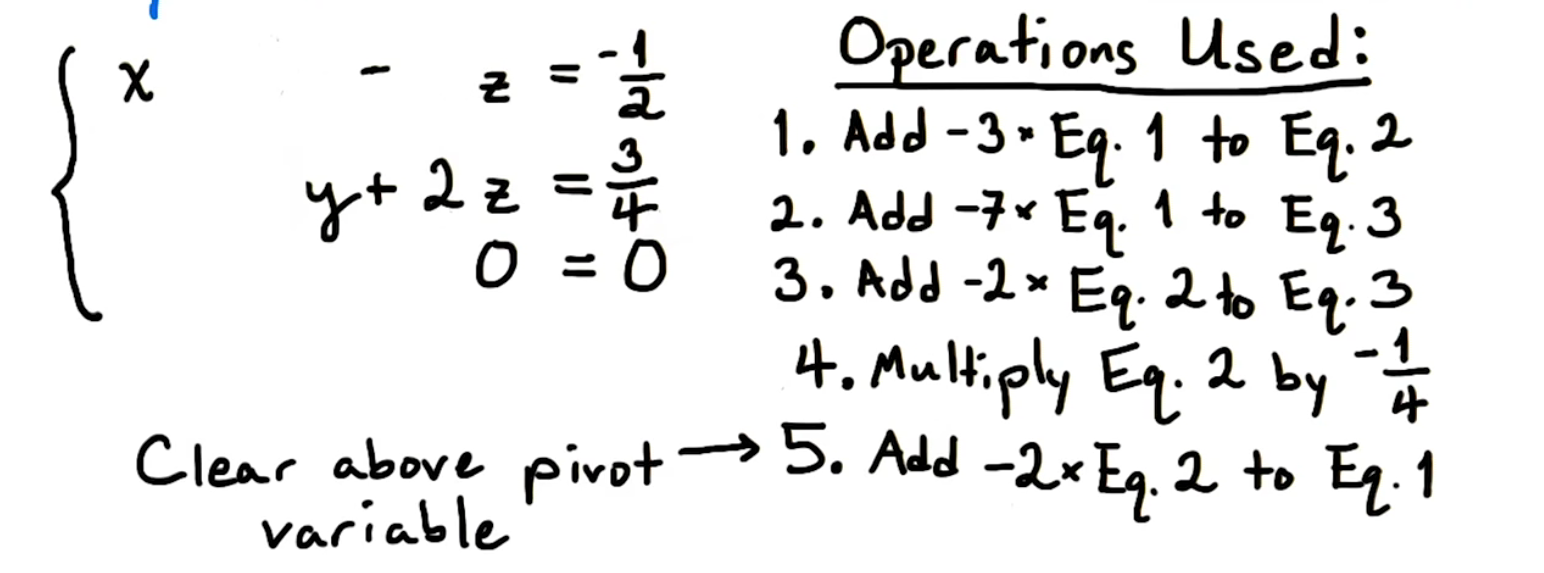 x - z = -1/2
y + 2z = 3/4
0 = 0
Operations Used:
1. Add -3 × Eq. 1 to Eq. 2
2. Add -7 × Eq. 1 to Eq. 3
3. Add -2 × Eq. 2 to Eq. 3
4. Multiply Eq. 2 by -1/4
Clear above pivot → 5. Add -2 × Eq. 2 to Eq. 1
variable